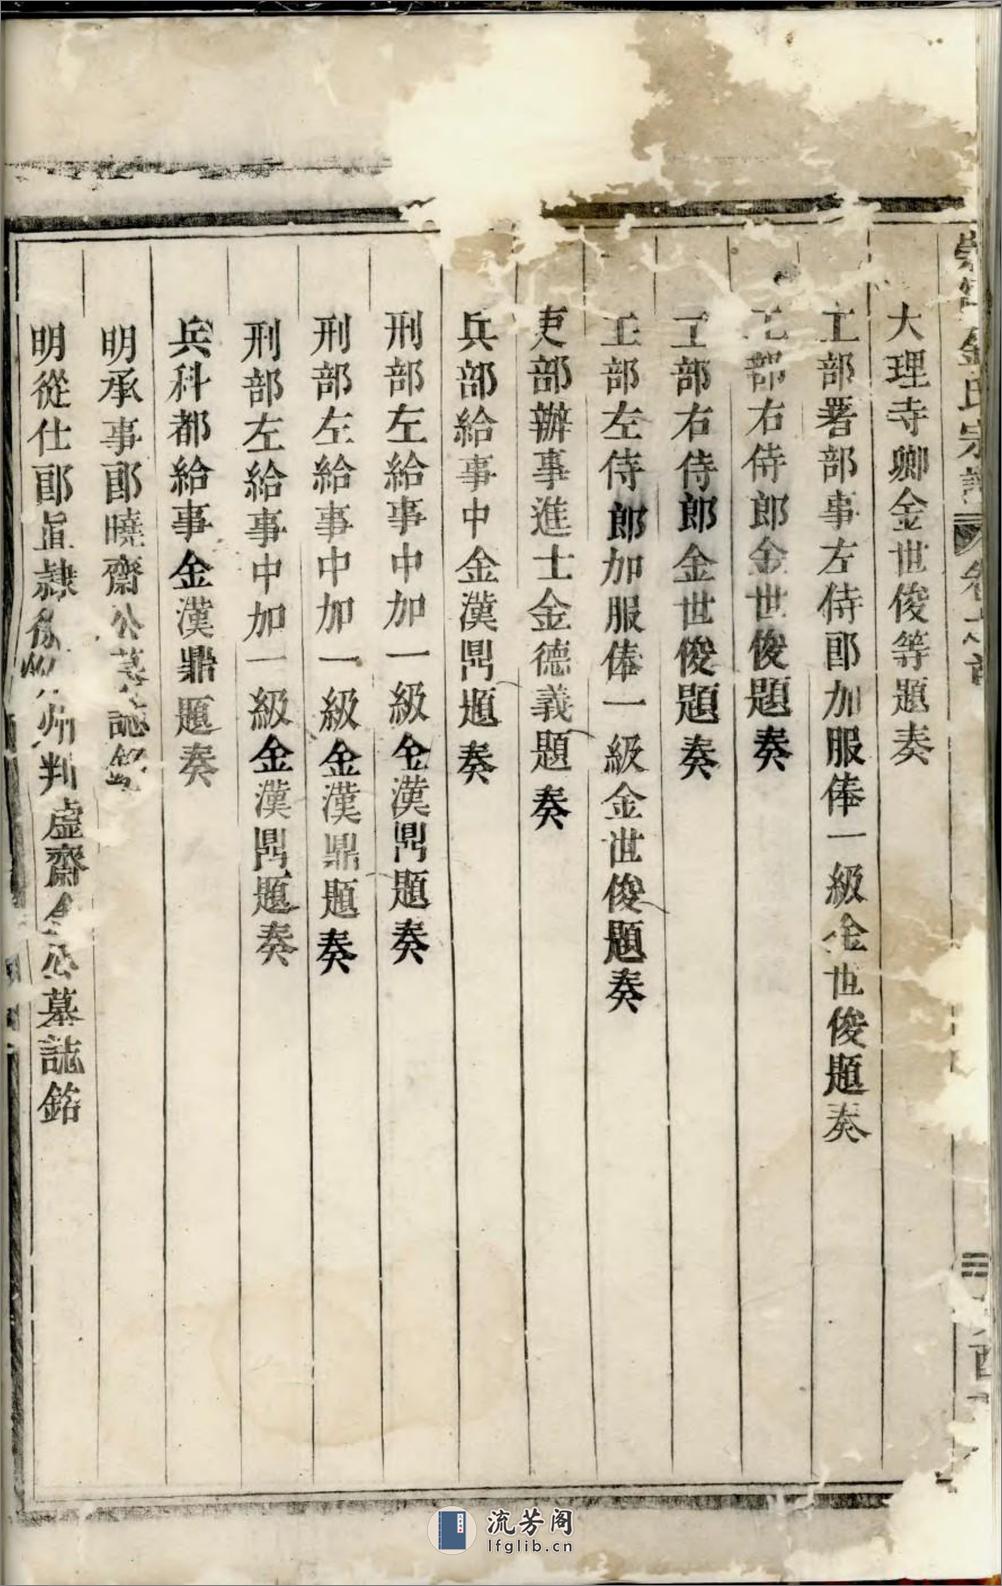 金氏宗譜 卷之首
大理寺卿金世俊等題奏
工部署部事左侍郎加服俸一級金世俊題奏
工部右侍郎金世俊題奏
工部右侍郎金世俊題奏
工部左侍郎加服俸一級金世俊題奏
吏部辦事進士金德義題奏
兵部給事中金漢鼎題奏
刑部左給事中加一級金漢鼎題奏
刑部左給事中加一級金漢鼎題奏
刑部左給事中加一級金漢鼎題奏
兵科都給事金漢鼎題奏
明承事郎曉齋公墓誌銘
明從仕郎直隸徐州州判虛齋金公墓誌銘
流芳阁
lfglib.cn